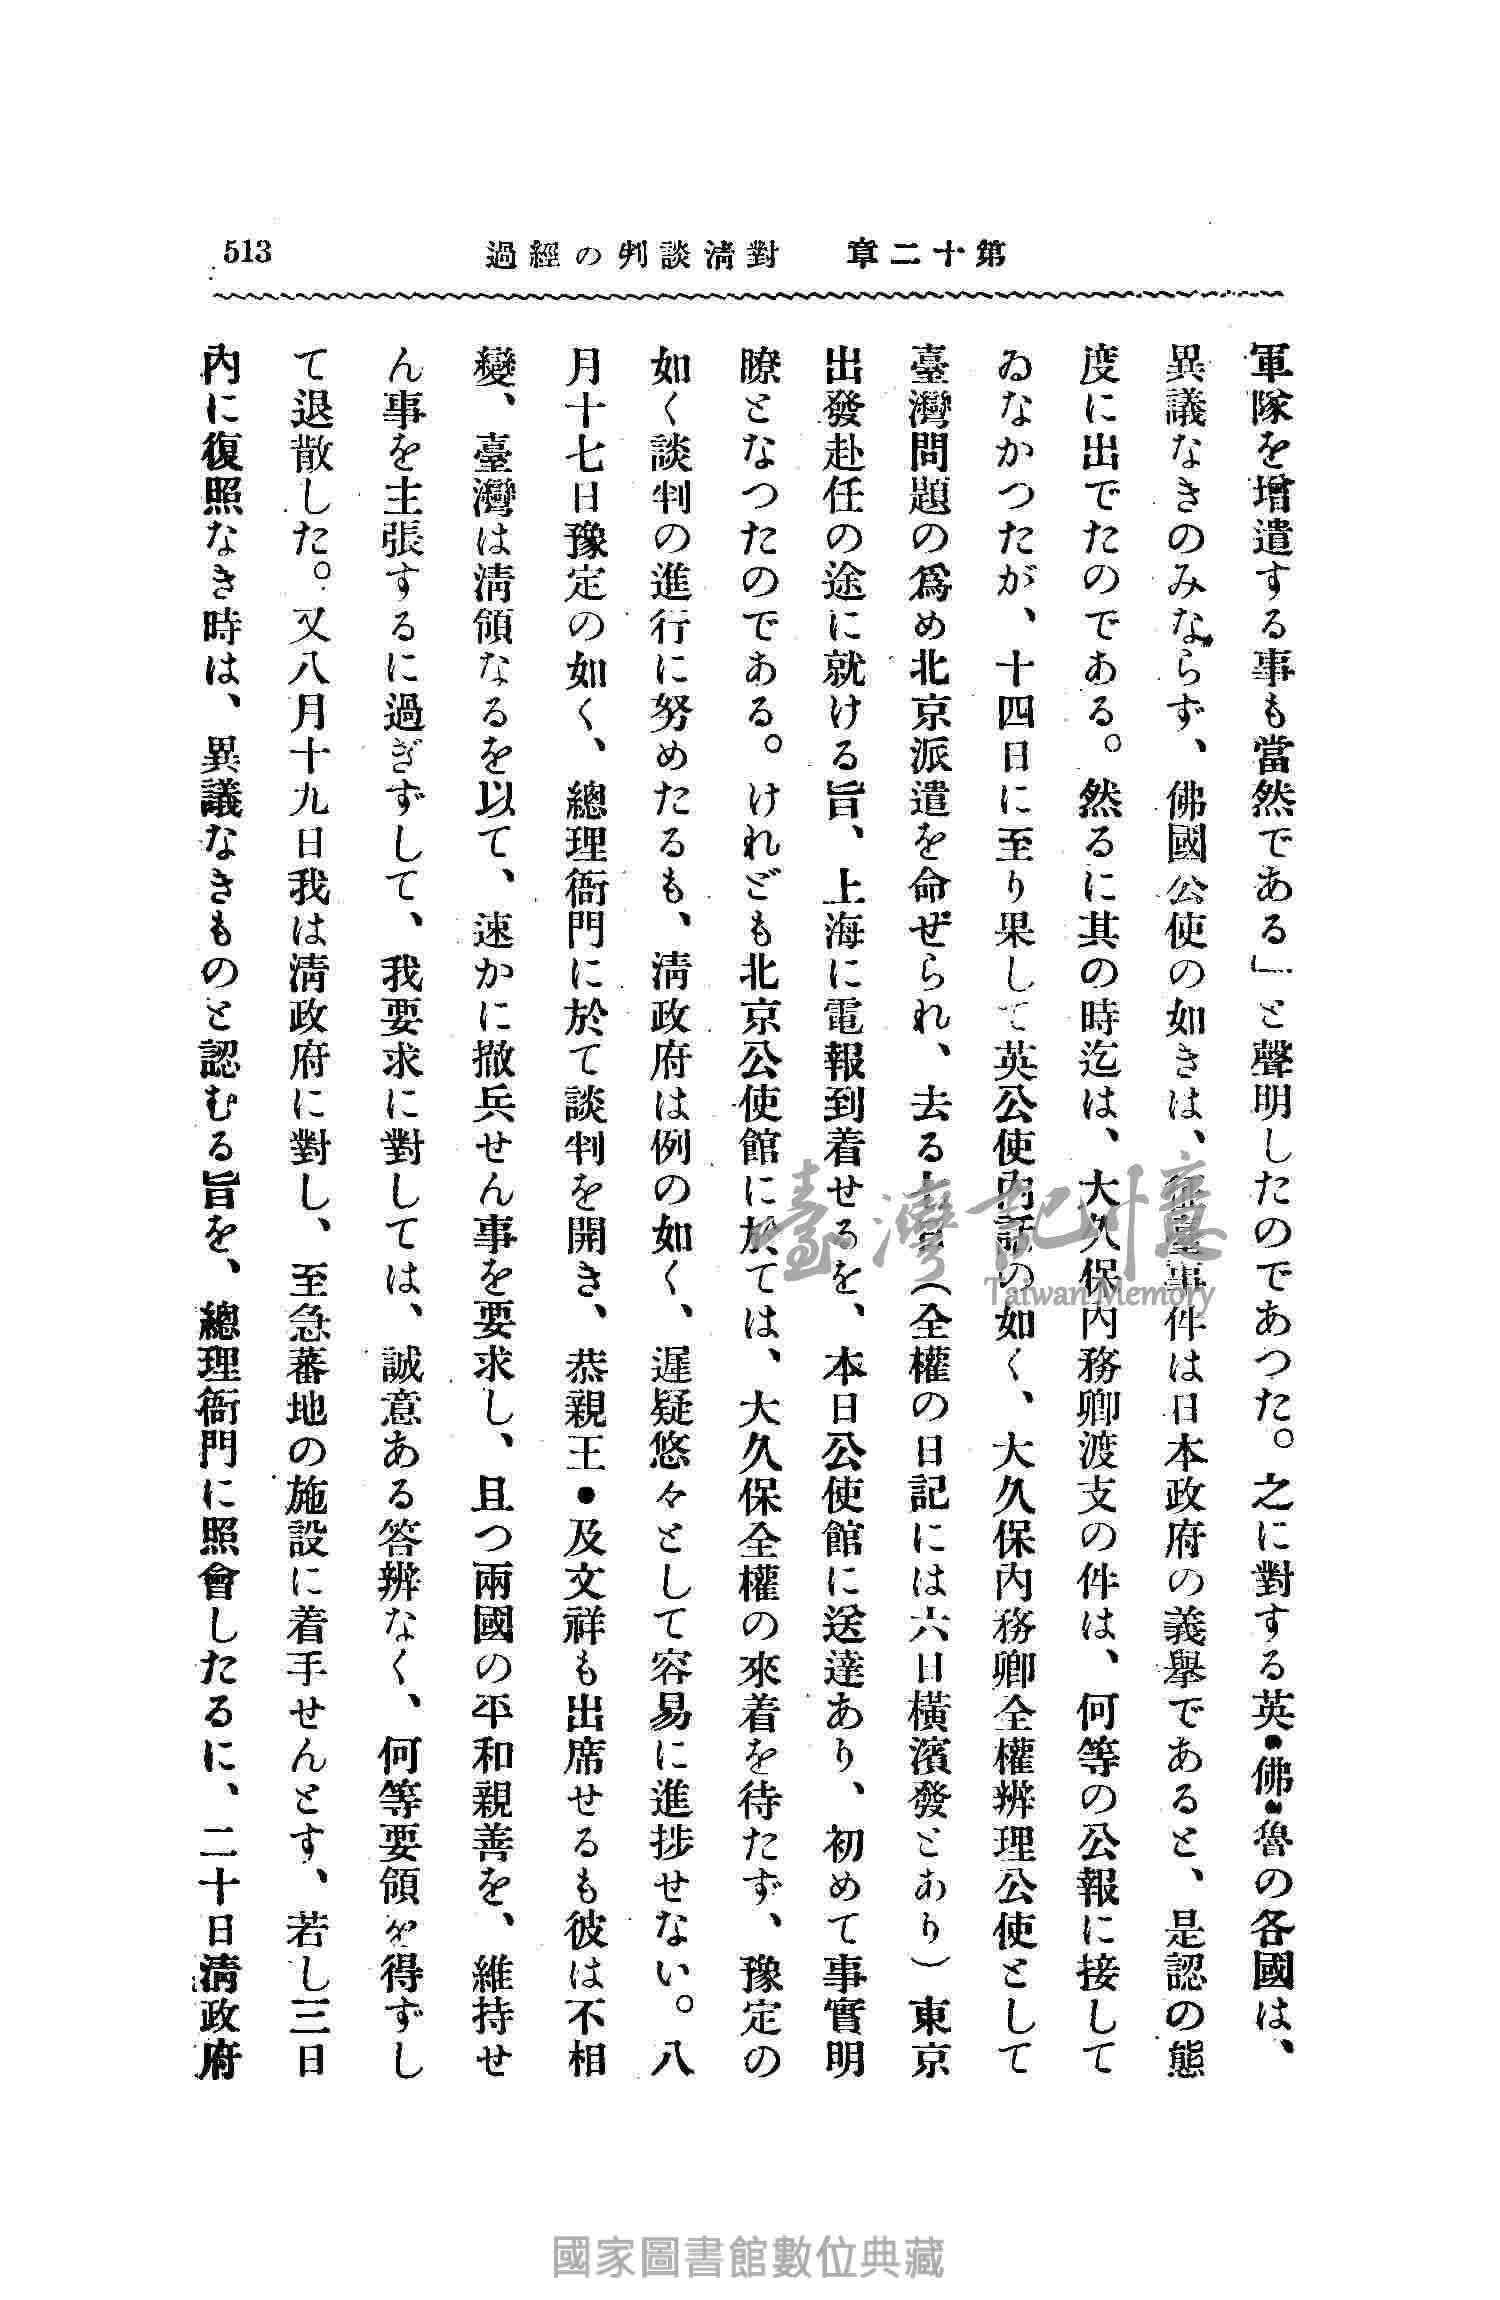 第十二章　對淸談判の經過
513
軍隊を增遣する事も當然である」と聲明したのであつた。之に對する英•佛•魯の各國は、
異議なきのみならず、佛國公使の如きは、征臺事件は日本政府の義擧であると、是認の態
度に出でたのである。然るに其の時迄は、大久保內務卿渡支の件は、何等の公報に接して
ゐなかつたが、十四日に至り果して英公使內話の如く、大久保內務卿全權辨理公使として
臺灣問題の爲め北京派遣を命ぜられ、去る　日（全權の日記には六日橫濱發とあり）東京
出發赴任の途に就ける旨、上海に電報到着せるを、本日公使館に送達あり、初めて事實明
瞭となつたのである。けれども北京公使館に於ては、大久保全權の來着を待たず、豫定の
如く談判の進行に努めたるも、淸政府は例の如く、遲疑悠々として容易に進捗せない。八
月十七日豫定の如く、總理衙門に於て談判を開き、恭親王•及文祥も出席せるも彼は不相
變、臺灣は淸領なるを以て、速かに撤兵せん事を要求し、且つ兩國の平和親善を、維持せ
ん事を主張するに過ぎずして、我要求に對しては、誠意ある答辨なく、何等要領を得ずし
て退散した。又八月十九日我は淸政府に對し、至急蕃地の施設に着手せんとす、若し三日
內に復照なき時は、異議なきものと認むる旨を、總理衙門に照會したるに、二十日淸政府
臺灣記憶
Taiwan Memory
國家圖書館數位典藏